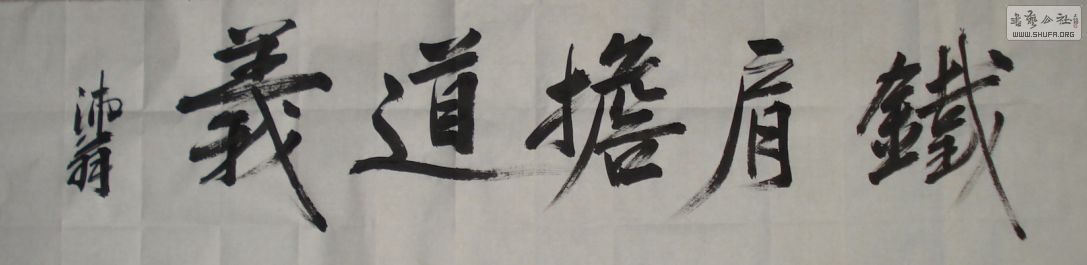 鐵肩擔道義
沛翁
書法公社
WWW.SHUFA.ORG